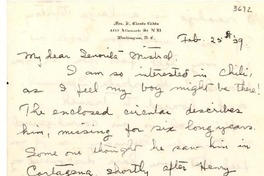 3672
Mrs. F.
Washington, D.C.
Feb. 25th 39.
My dear Senorita Mistral
I am so interested in Chili,
as I feel my boy might be there!
The enclosed circular describes
him, missing for six long years.
Some one thought he saw him in
Cartagena shortly after Henry